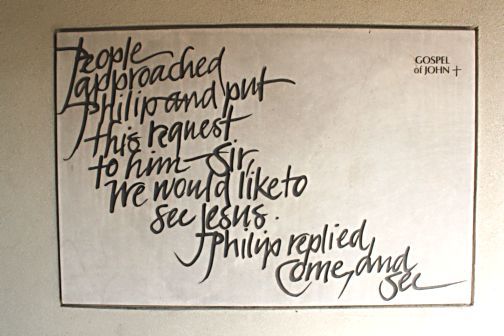 People
approached
Philip and put
this request
to him - Sir,
We would like to
see Jesus.
Philip replied,
Come, and
see
GOSPEL
of JOHN +